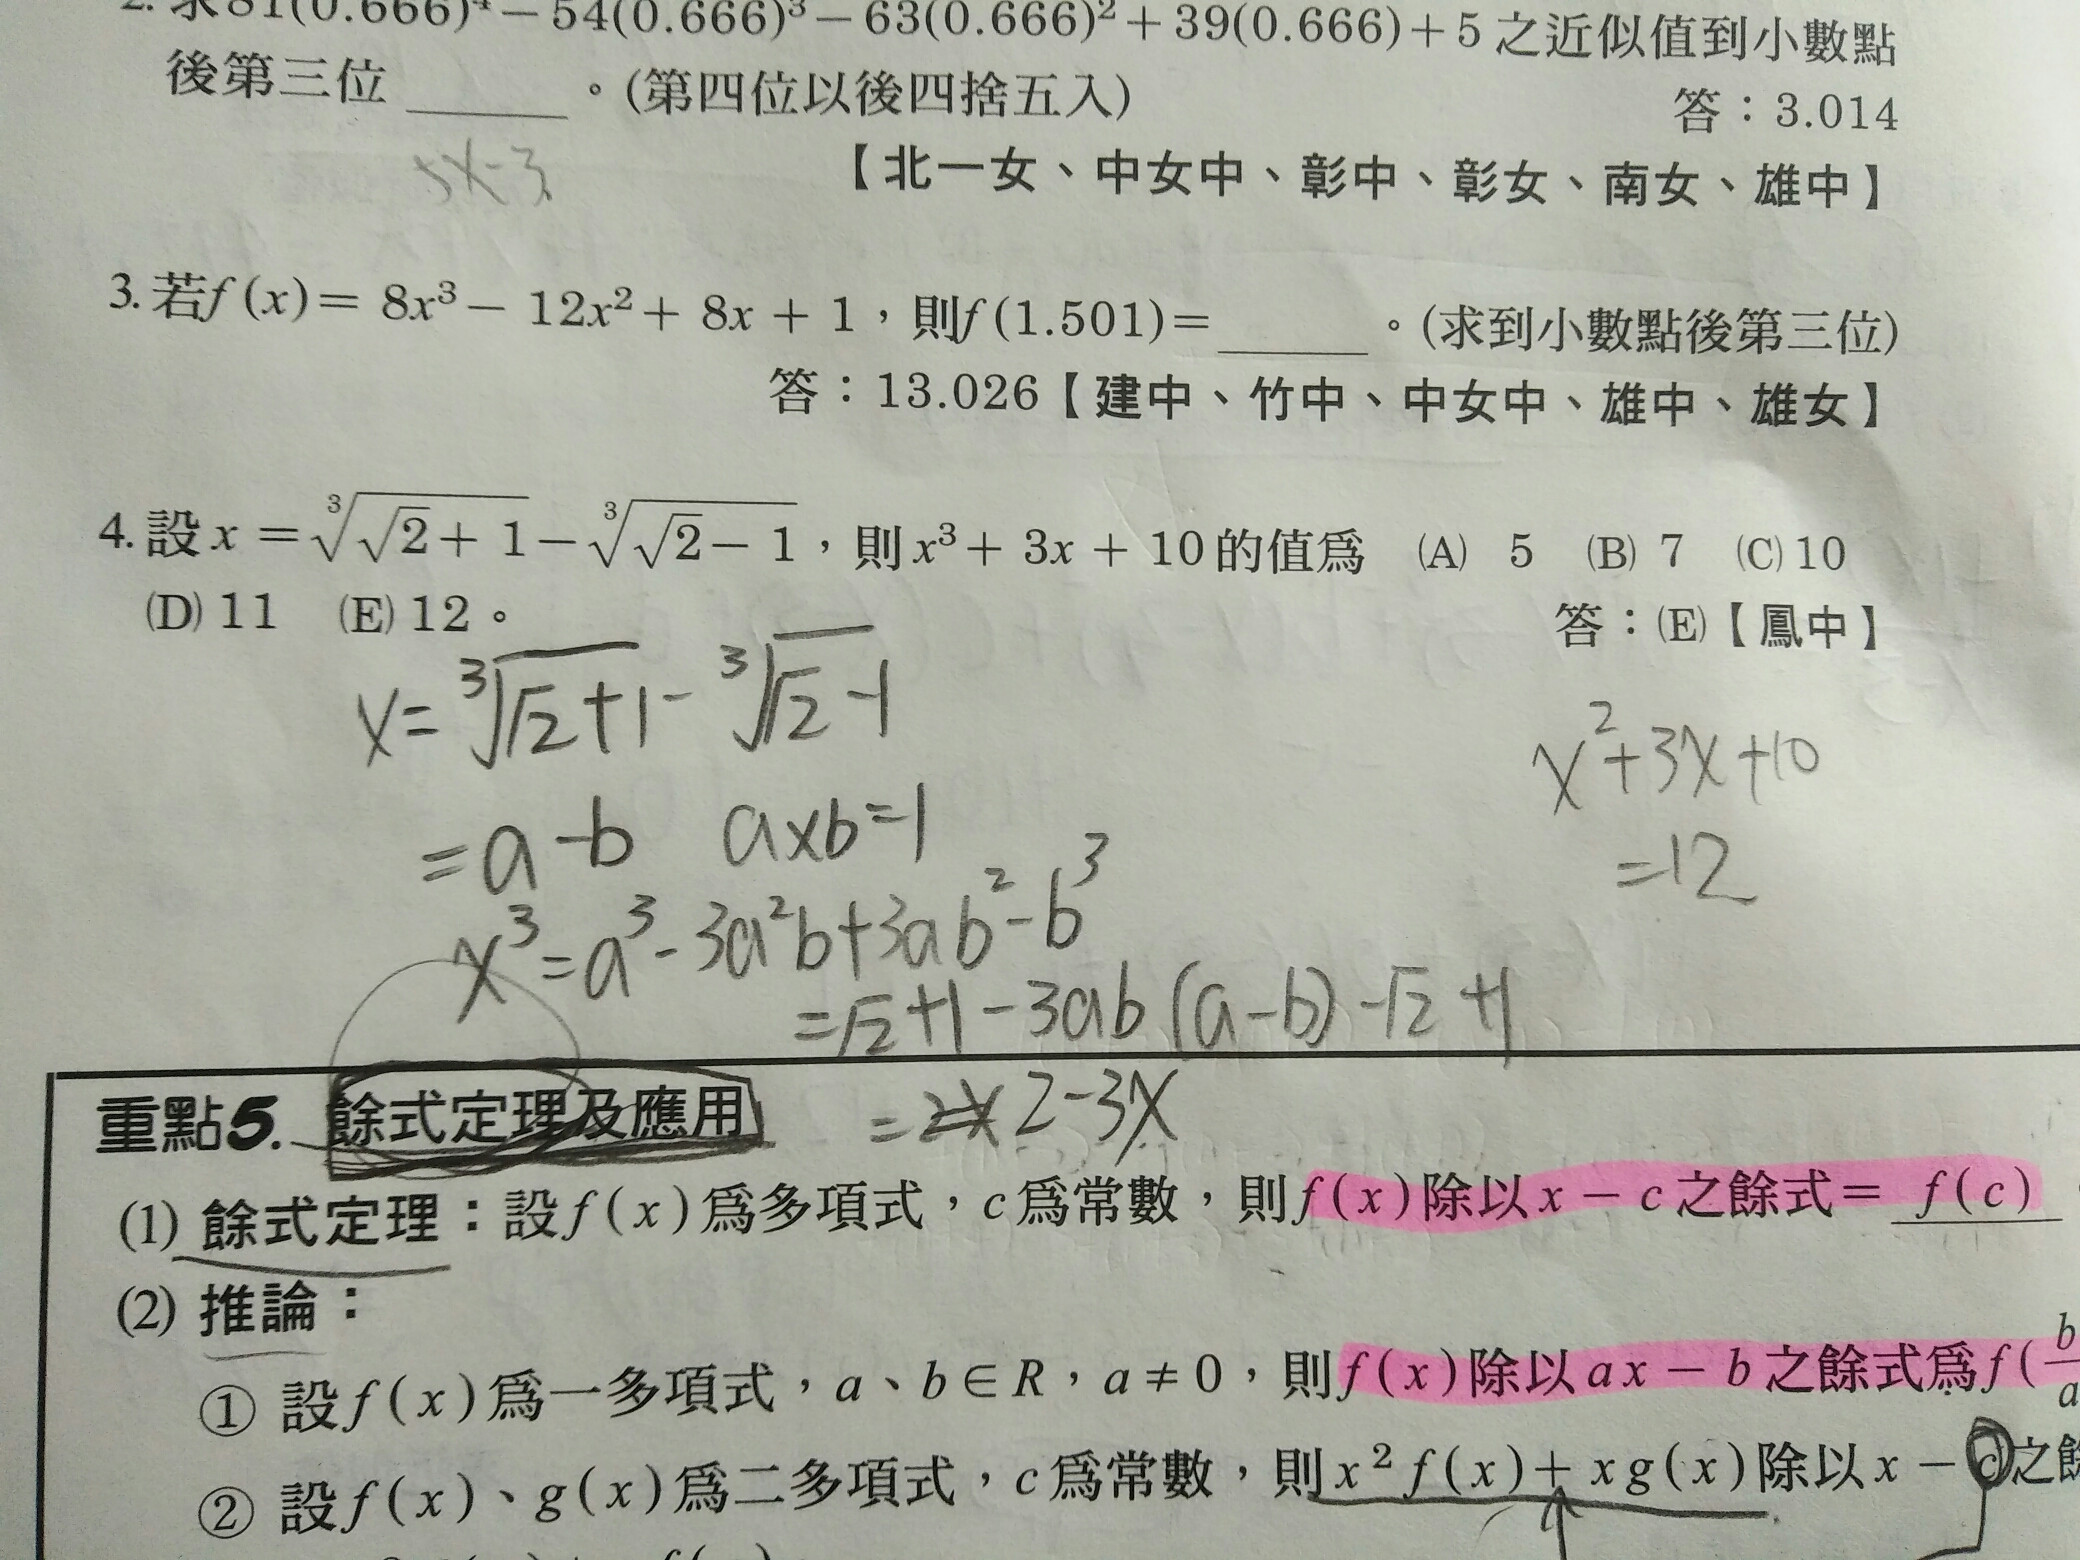 2. 求81(0.666)⁴－54(0.666)³－63(0.666)²＋39(0.666)＋5之近似值到小數點
後第三位＿＿＿。(第四位以後四捨五入)
答：3.014
5x-3
【北一女、中女中、彰中、彰女、南女、雄中】
3. 若f(x)= 8x³－ 12x²＋ 8x ＋ 1，則f(1.501)=＿＿＿。(求到小數點後第三位)
答：13.026【建中、竹中、中女中、雄中、雄女】
4. 設x = ∛(√2＋1)－∛(√2－1)，則x³＋ 3x ＋ 10的值爲 (A) 5 (B) 7 (C) 10
(D) 11 (E) 12。
答：(E)【鳳中】
x= ∛(√2+1) - ∛(√2-1)
x²+3x+10
=a-b a×b=1
=12
x³=a³-3a²b+3ab²-b³
=√2+1-3ab(a-b)-√2+1
=2-3x
重點5. 餘式定理及應用
(1) 餘式定理：設f(x)爲多項式，c爲常數，則f(x)除以x－c之餘式＝ f(c)
(2) 推論：
① 設f(x)爲一多項式，a、b∈R，a≠0，則f(x)除以ax－b之餘式爲f(b/a
② 設f(x)、g(x)爲二多項式，c爲常數，則x²f(x)＋xg(x)除以x－c之餘